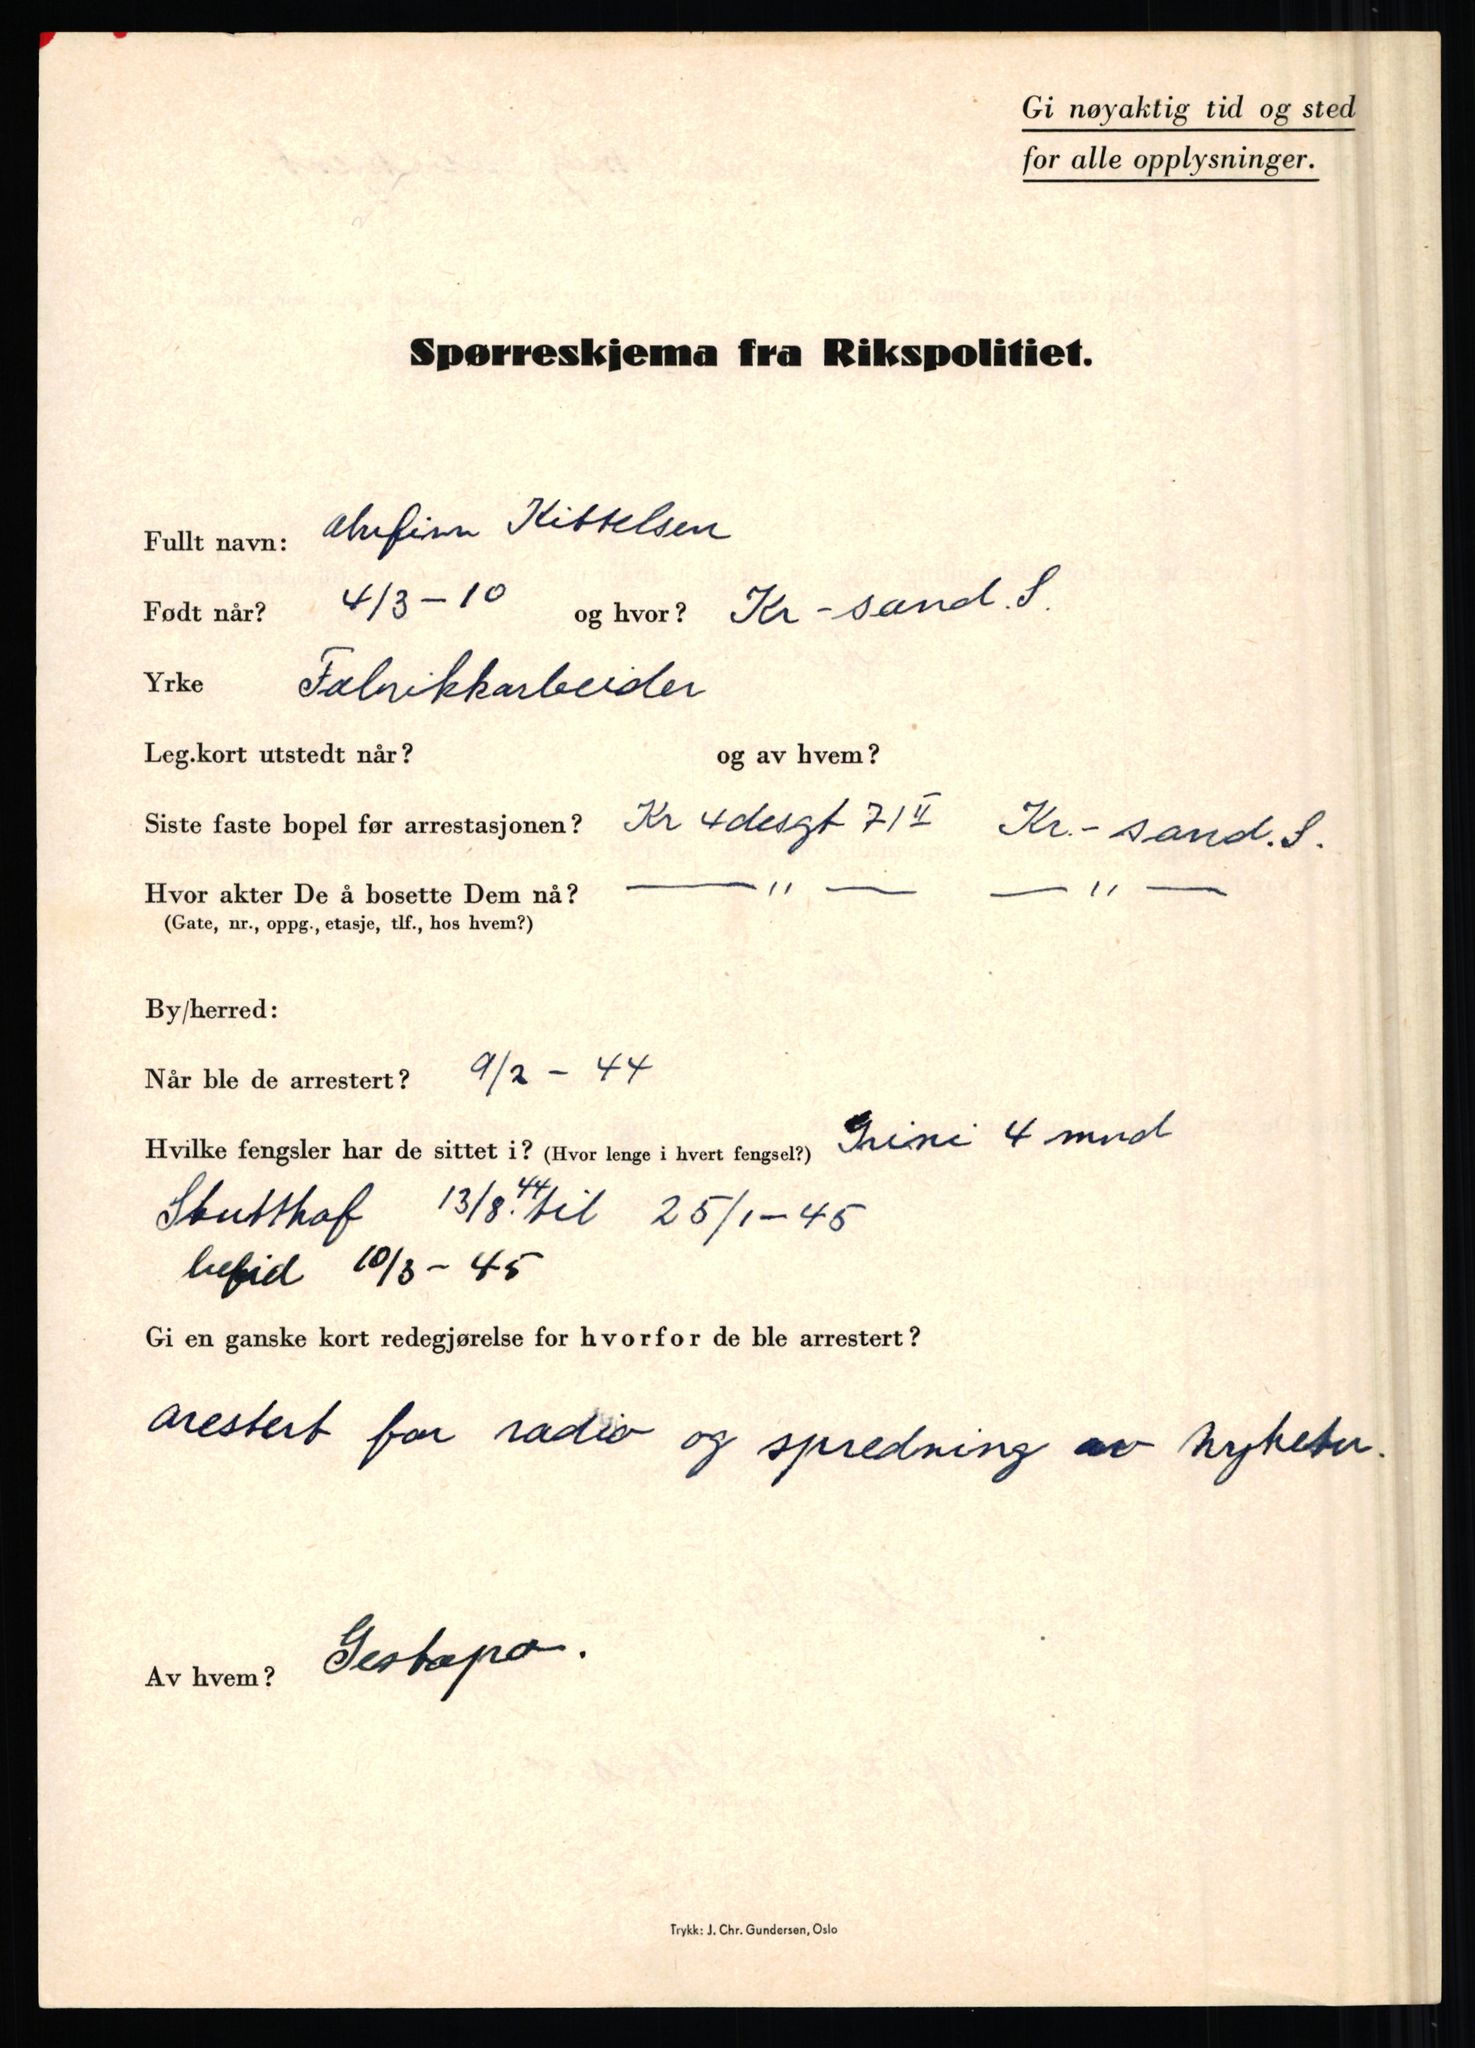 Gi nøyaktig tid og sted
for alle opplysninger.
Spørreskjema fra Rikspolitiet.
Fullt navn: Kittelsen
Født når? 4/3 - 10 og hvor? Kr - sand. S.
Yrke Fabrikkarbeider
Leg.kort utstedt når? og av hvem?
Siste faste bopel før arrestasjonen? Kr 4desgt 71 II Kr. - sand. S.
Hvor akter De å bosette Dem nå? — " — — " —
(Gate, nr., oppg., etasje, tlf., hos hvem?)
By/herred:
Når ble de arrestert? 9/2 - 44
Hvilke fengsler har de sittet i? (Hvor lenge i hvert fengsel?) Grini 4 mnd
Stutthof 13/8.44 til 25/1 - 45
befrid 10/3 - 45
Gi en ganske kort redegjørelse for hvorfor de ble arrestert?
arestert for radio og spredning av nyheter.
Av hvem? Gestapo.
Trykk: J. Chr. Gundersen, Oslo